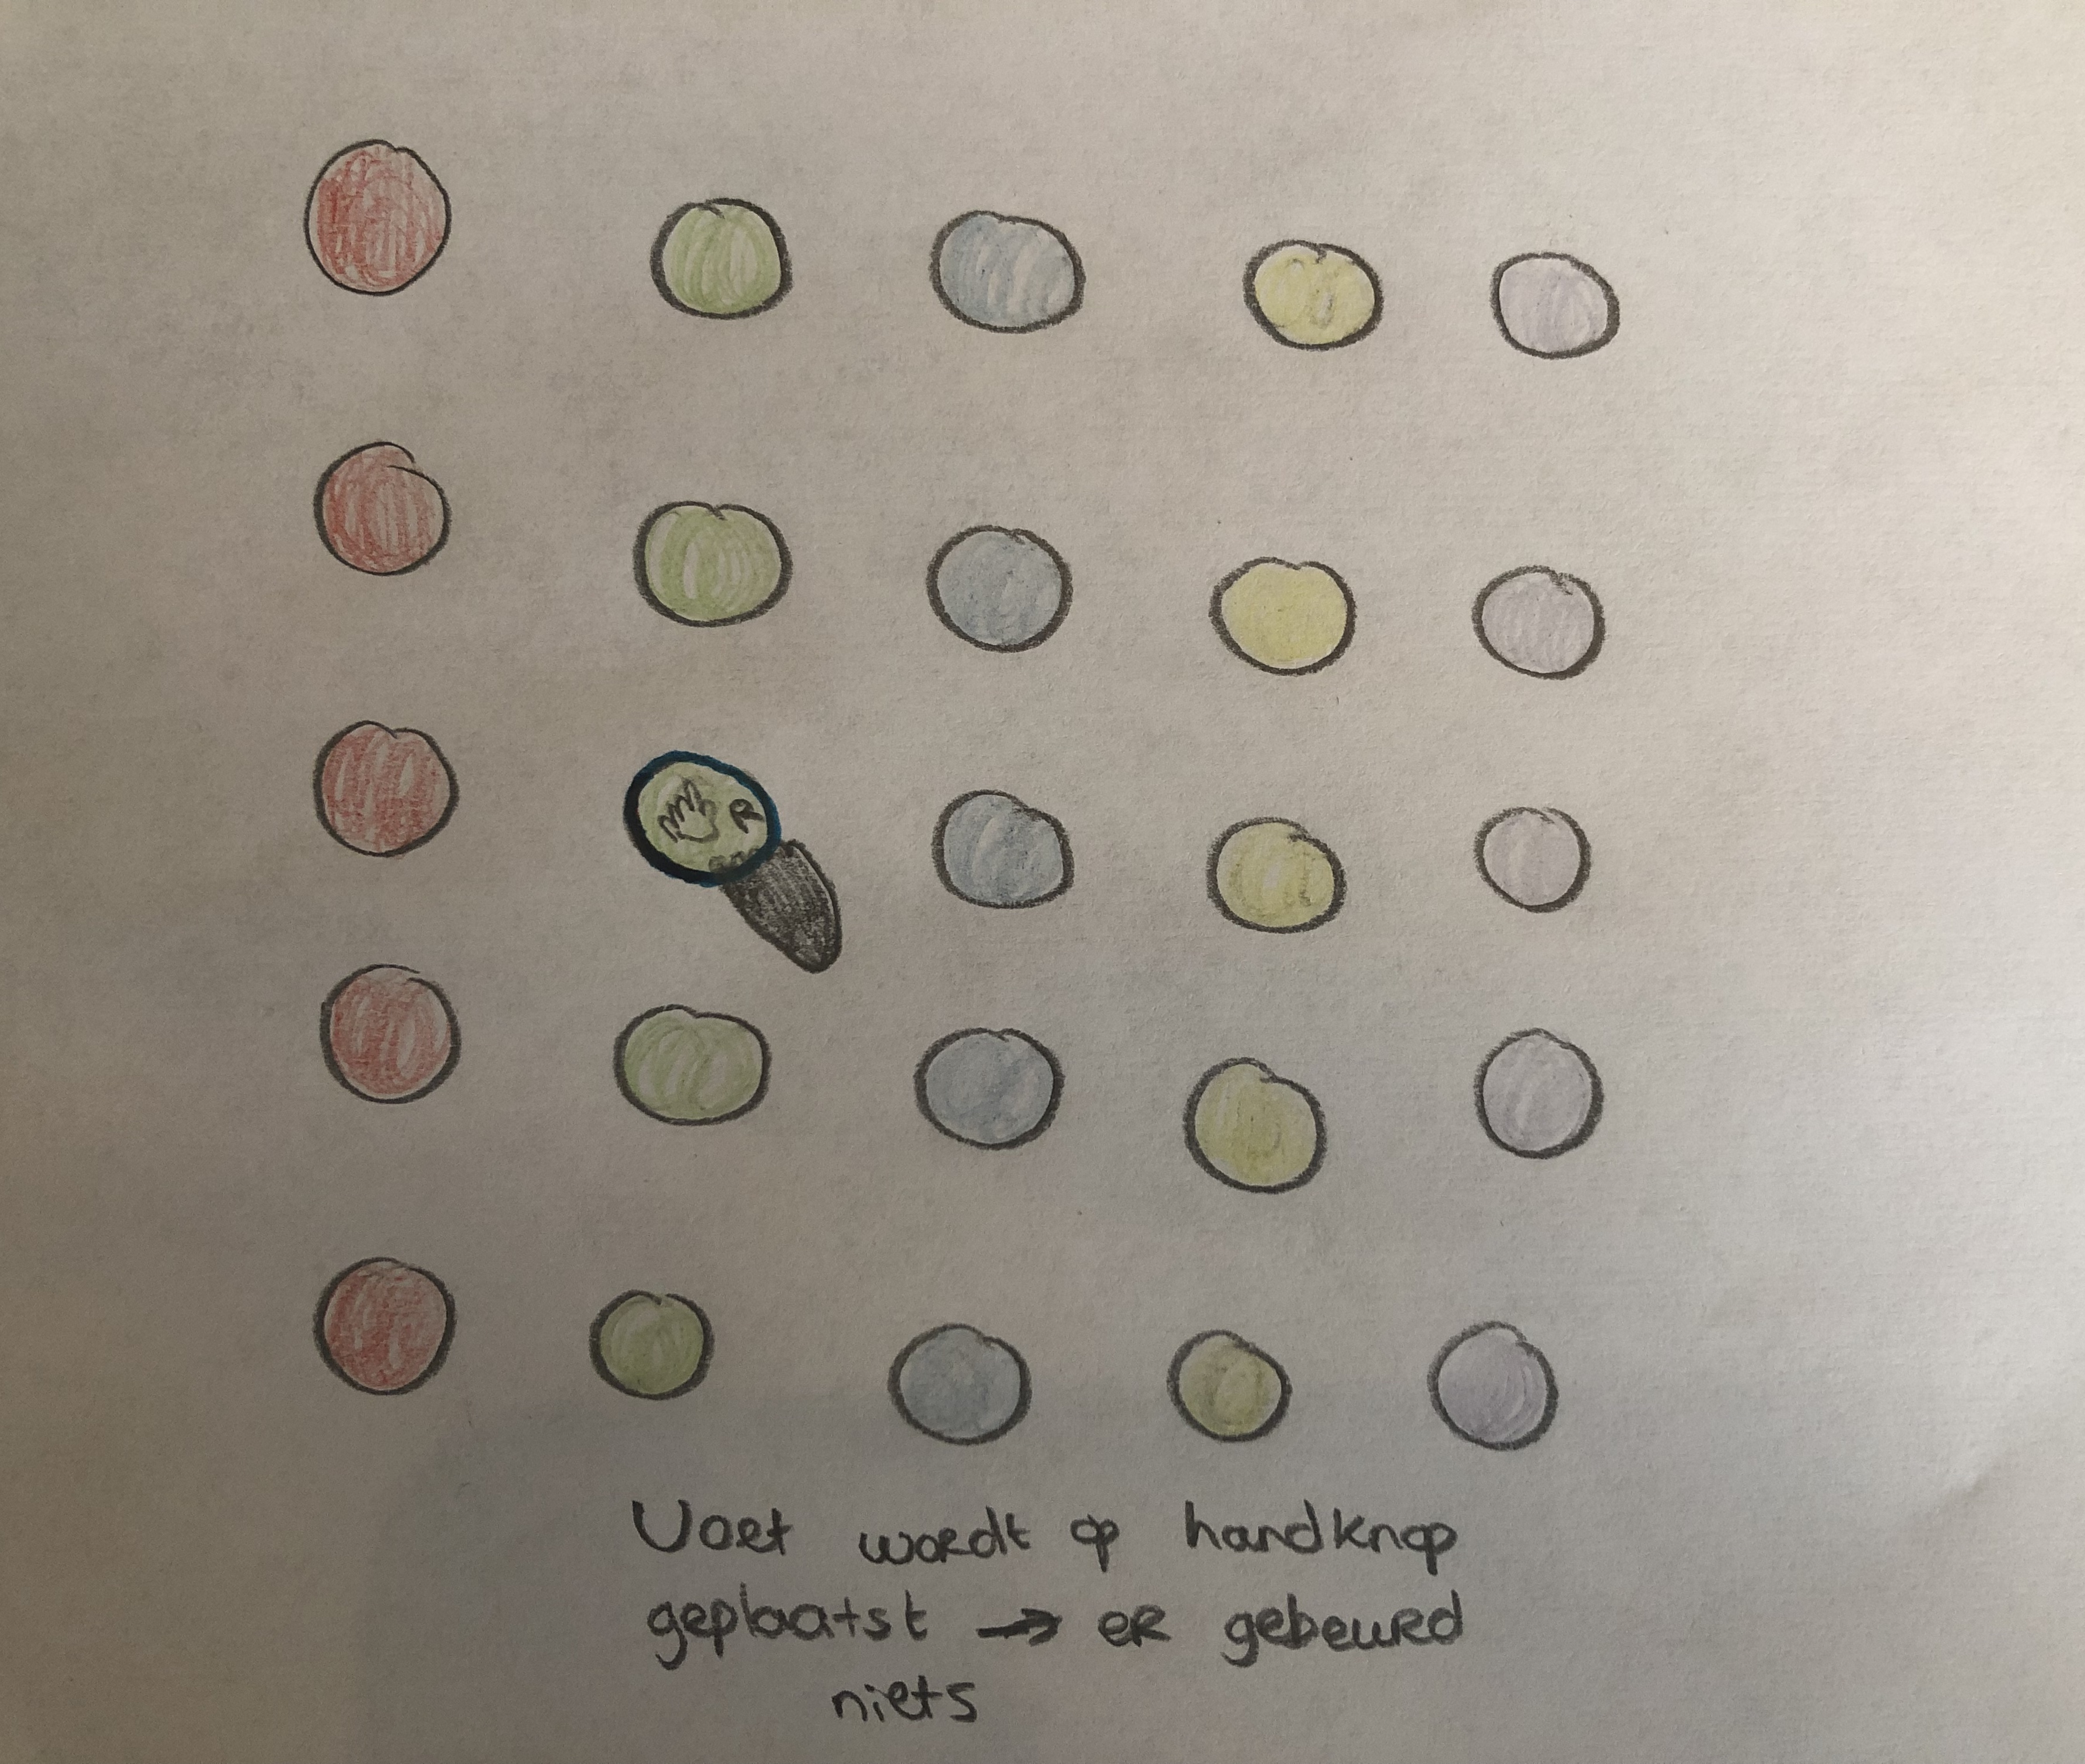 R
Voet wordt op handknop
geplaatst → er gebeurd
niets